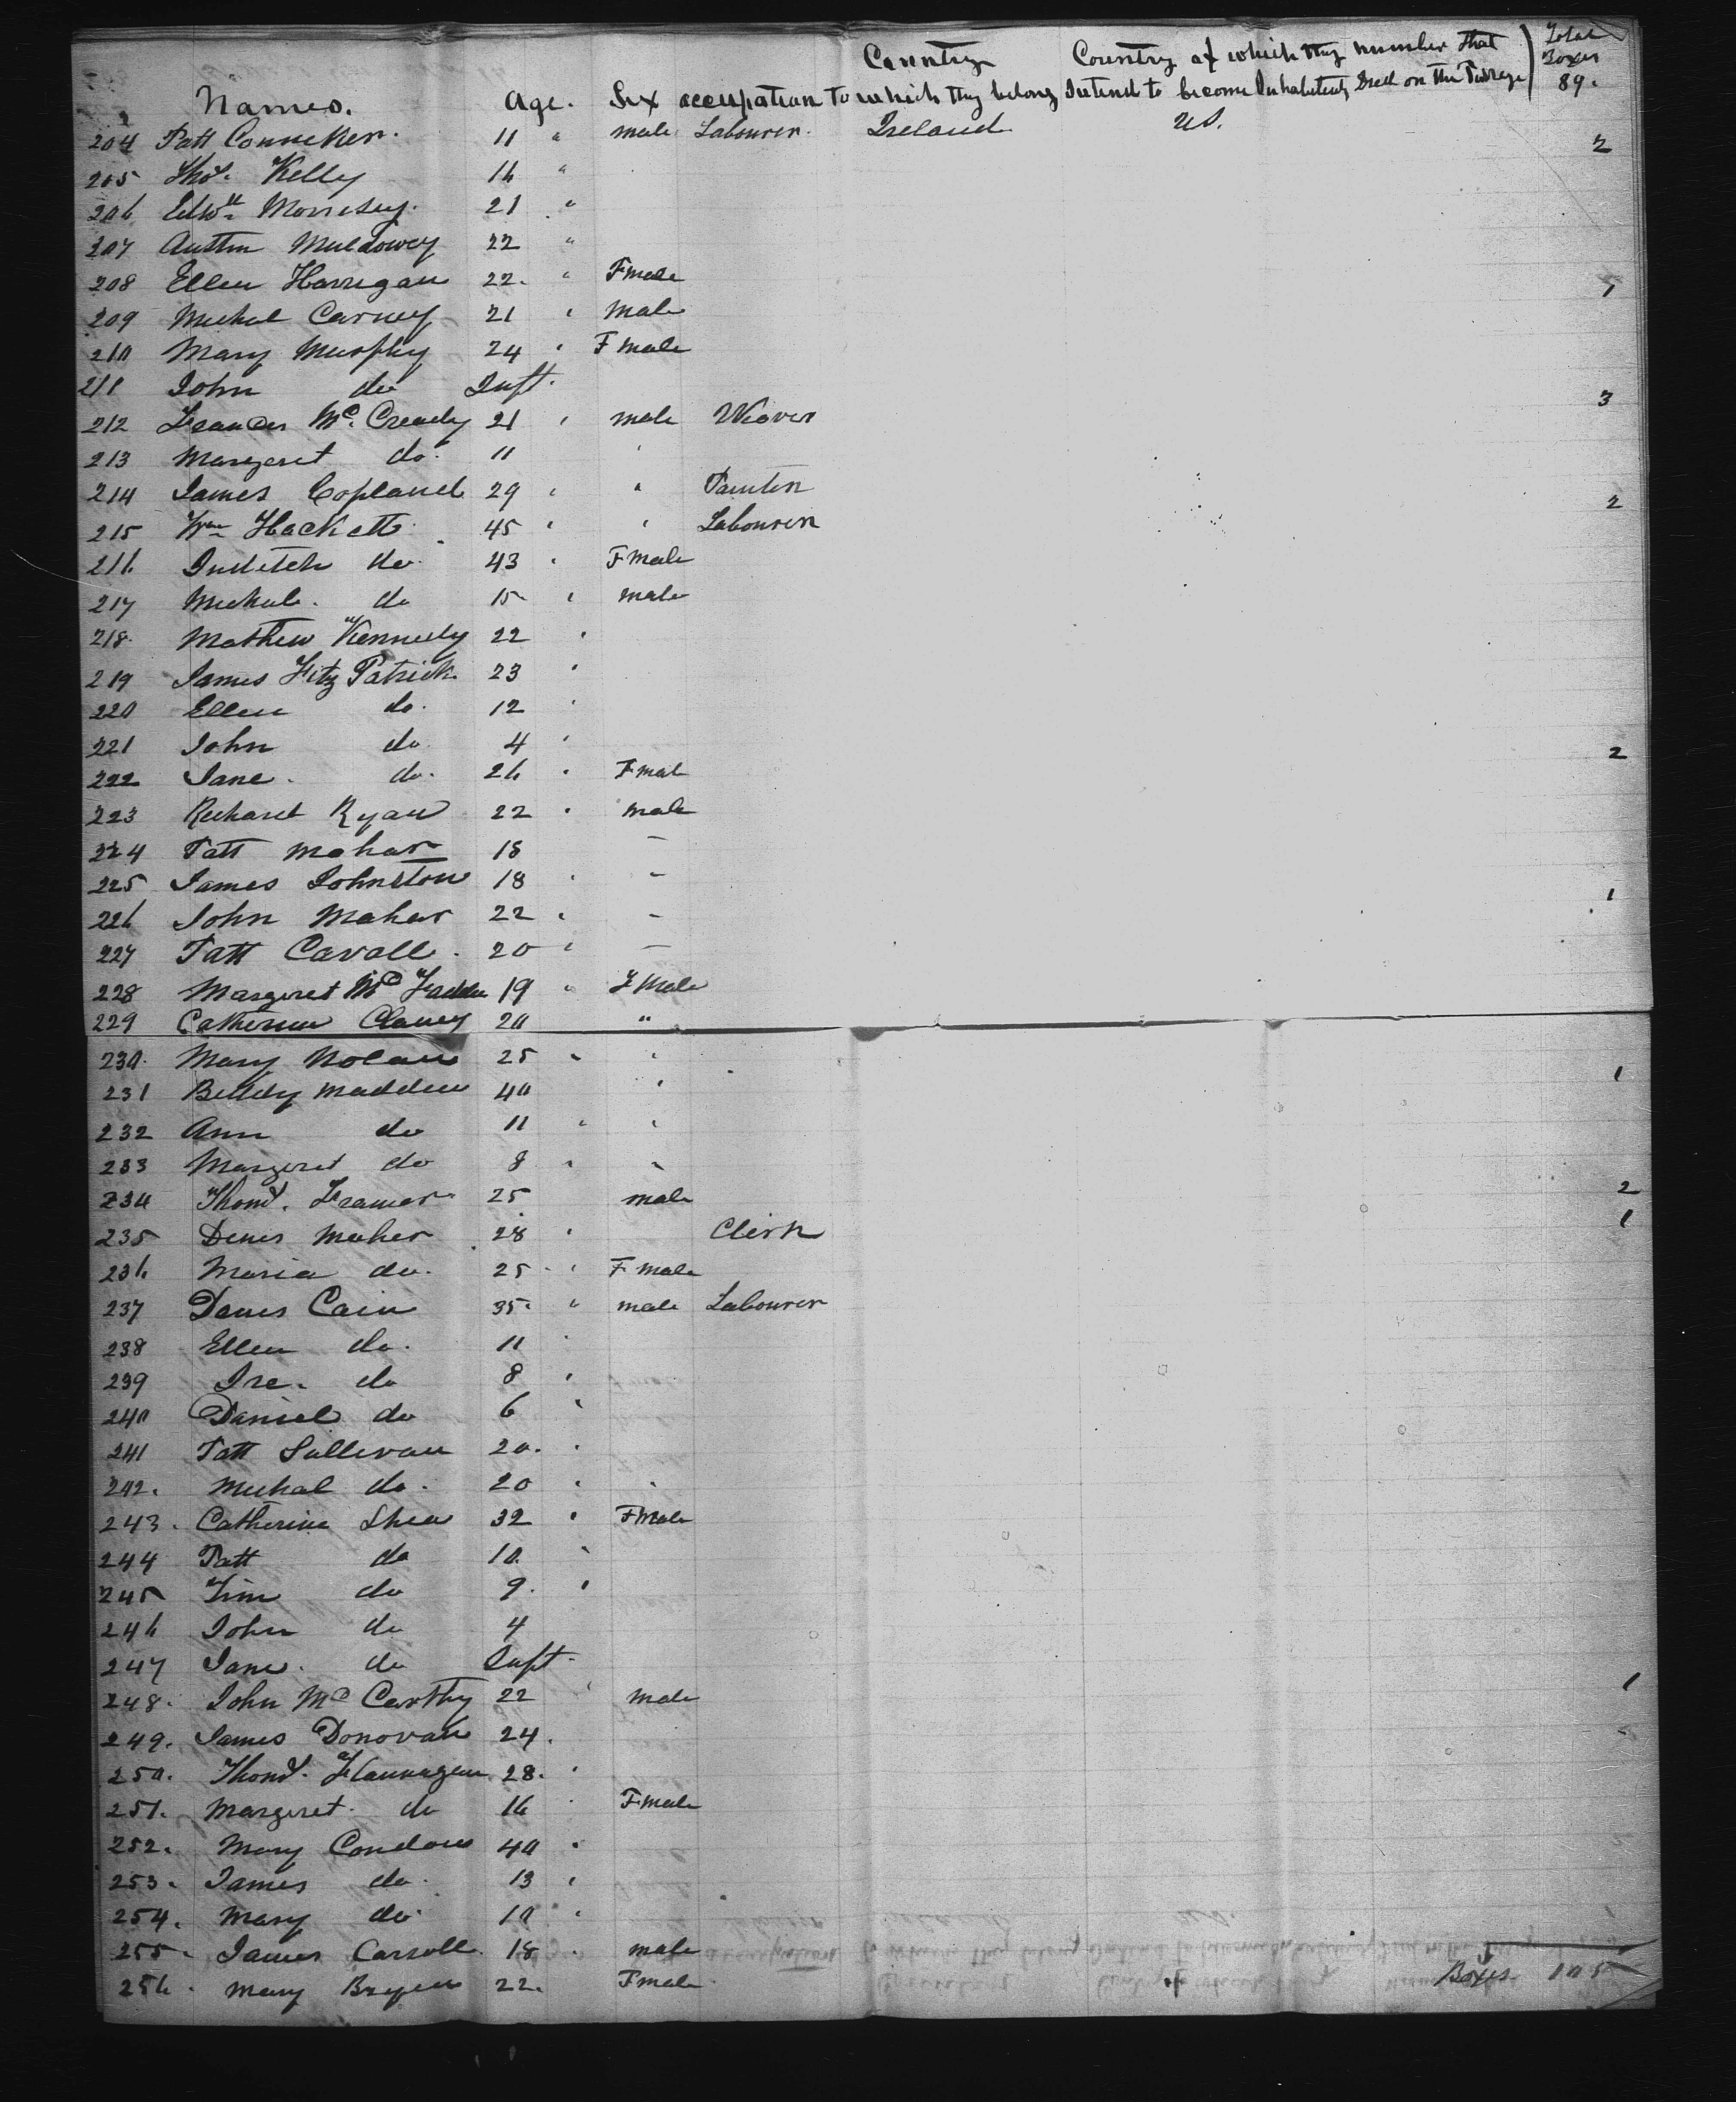 Country Country of which they number that Total
Names. Age. Sex occupation to which they belong Intend to become Inhabitents Died on the Passage Boxes 89.
204 Patt Conneker. 11 " male Labourer. Ireland US. 2
205 Thos. Kelly 16 "
206 Edwd. Morrisey. 21 "
207 Austin Muldowey 22 "
208 Ellen Harrigan 22. " Fmale 1
209 Michel Carney 21 " male
210 Mary Murphy 24 " Fmale
211 John do Inft.
212 Frances Mc. Cready 21 " male Weaver 3
213 Margeret do. 11 "
214 James Copland 29 " " Painter
215 Wm Hackett 45 " " Labourer 2
216 Juditch do. 43 " Fmale
217 Michale. do 15 " male
218. Mathew Kennedy 22 "
219 James Fitz Patrick 23 "
220 Ellen do. 12 "
221 John do 4 "
222 Jane. do. 26 " Fmal 2
223 Richard Ryan 22 " male
224 Patt Mahar 18 -
225 James Johnston 18 " -
226 John Mahar 22 " - 1
227 Patt Cavall. 20 " -
228 Margeret Mc Fadden 19 " Fmale
229 Catherine Clancy 20 "
230. Mary Nolan 25 " "
231 Biddy Madden 40 " 1
232 Ann do 11 " "
233 Margeret do 8 " "
234 Thoms. Framer 25 male 2
235 Denis Maher 28 " Clerk 1
236 Maria do. 25 " Fmale
237 Denis Cain 35. " male Labourer
238 Ellen do. 11 "
239 Ire. do 8 "
240 Daniel do 6 "
241 Patt Sullivan 20. "
242. Michal do. 20 " "
243. Catherine Shea 32 " FMale
244 Patt do 10. "
245 Tim do 9. "
246 John do 4
247 Jane. do Inft.
248. John Mc Carthy 22 " male 1
249. James Donovan 24.
250. Thoms. Flannagan 28. "
251. Margeret. do 16 " Fmale
252. Mary Condon 40 "
253. James do. 13 "
254. Mary do. 10 "
255. James Carroll. 18 " male
256. Mary Bryen 22. Fmale Boxes 105